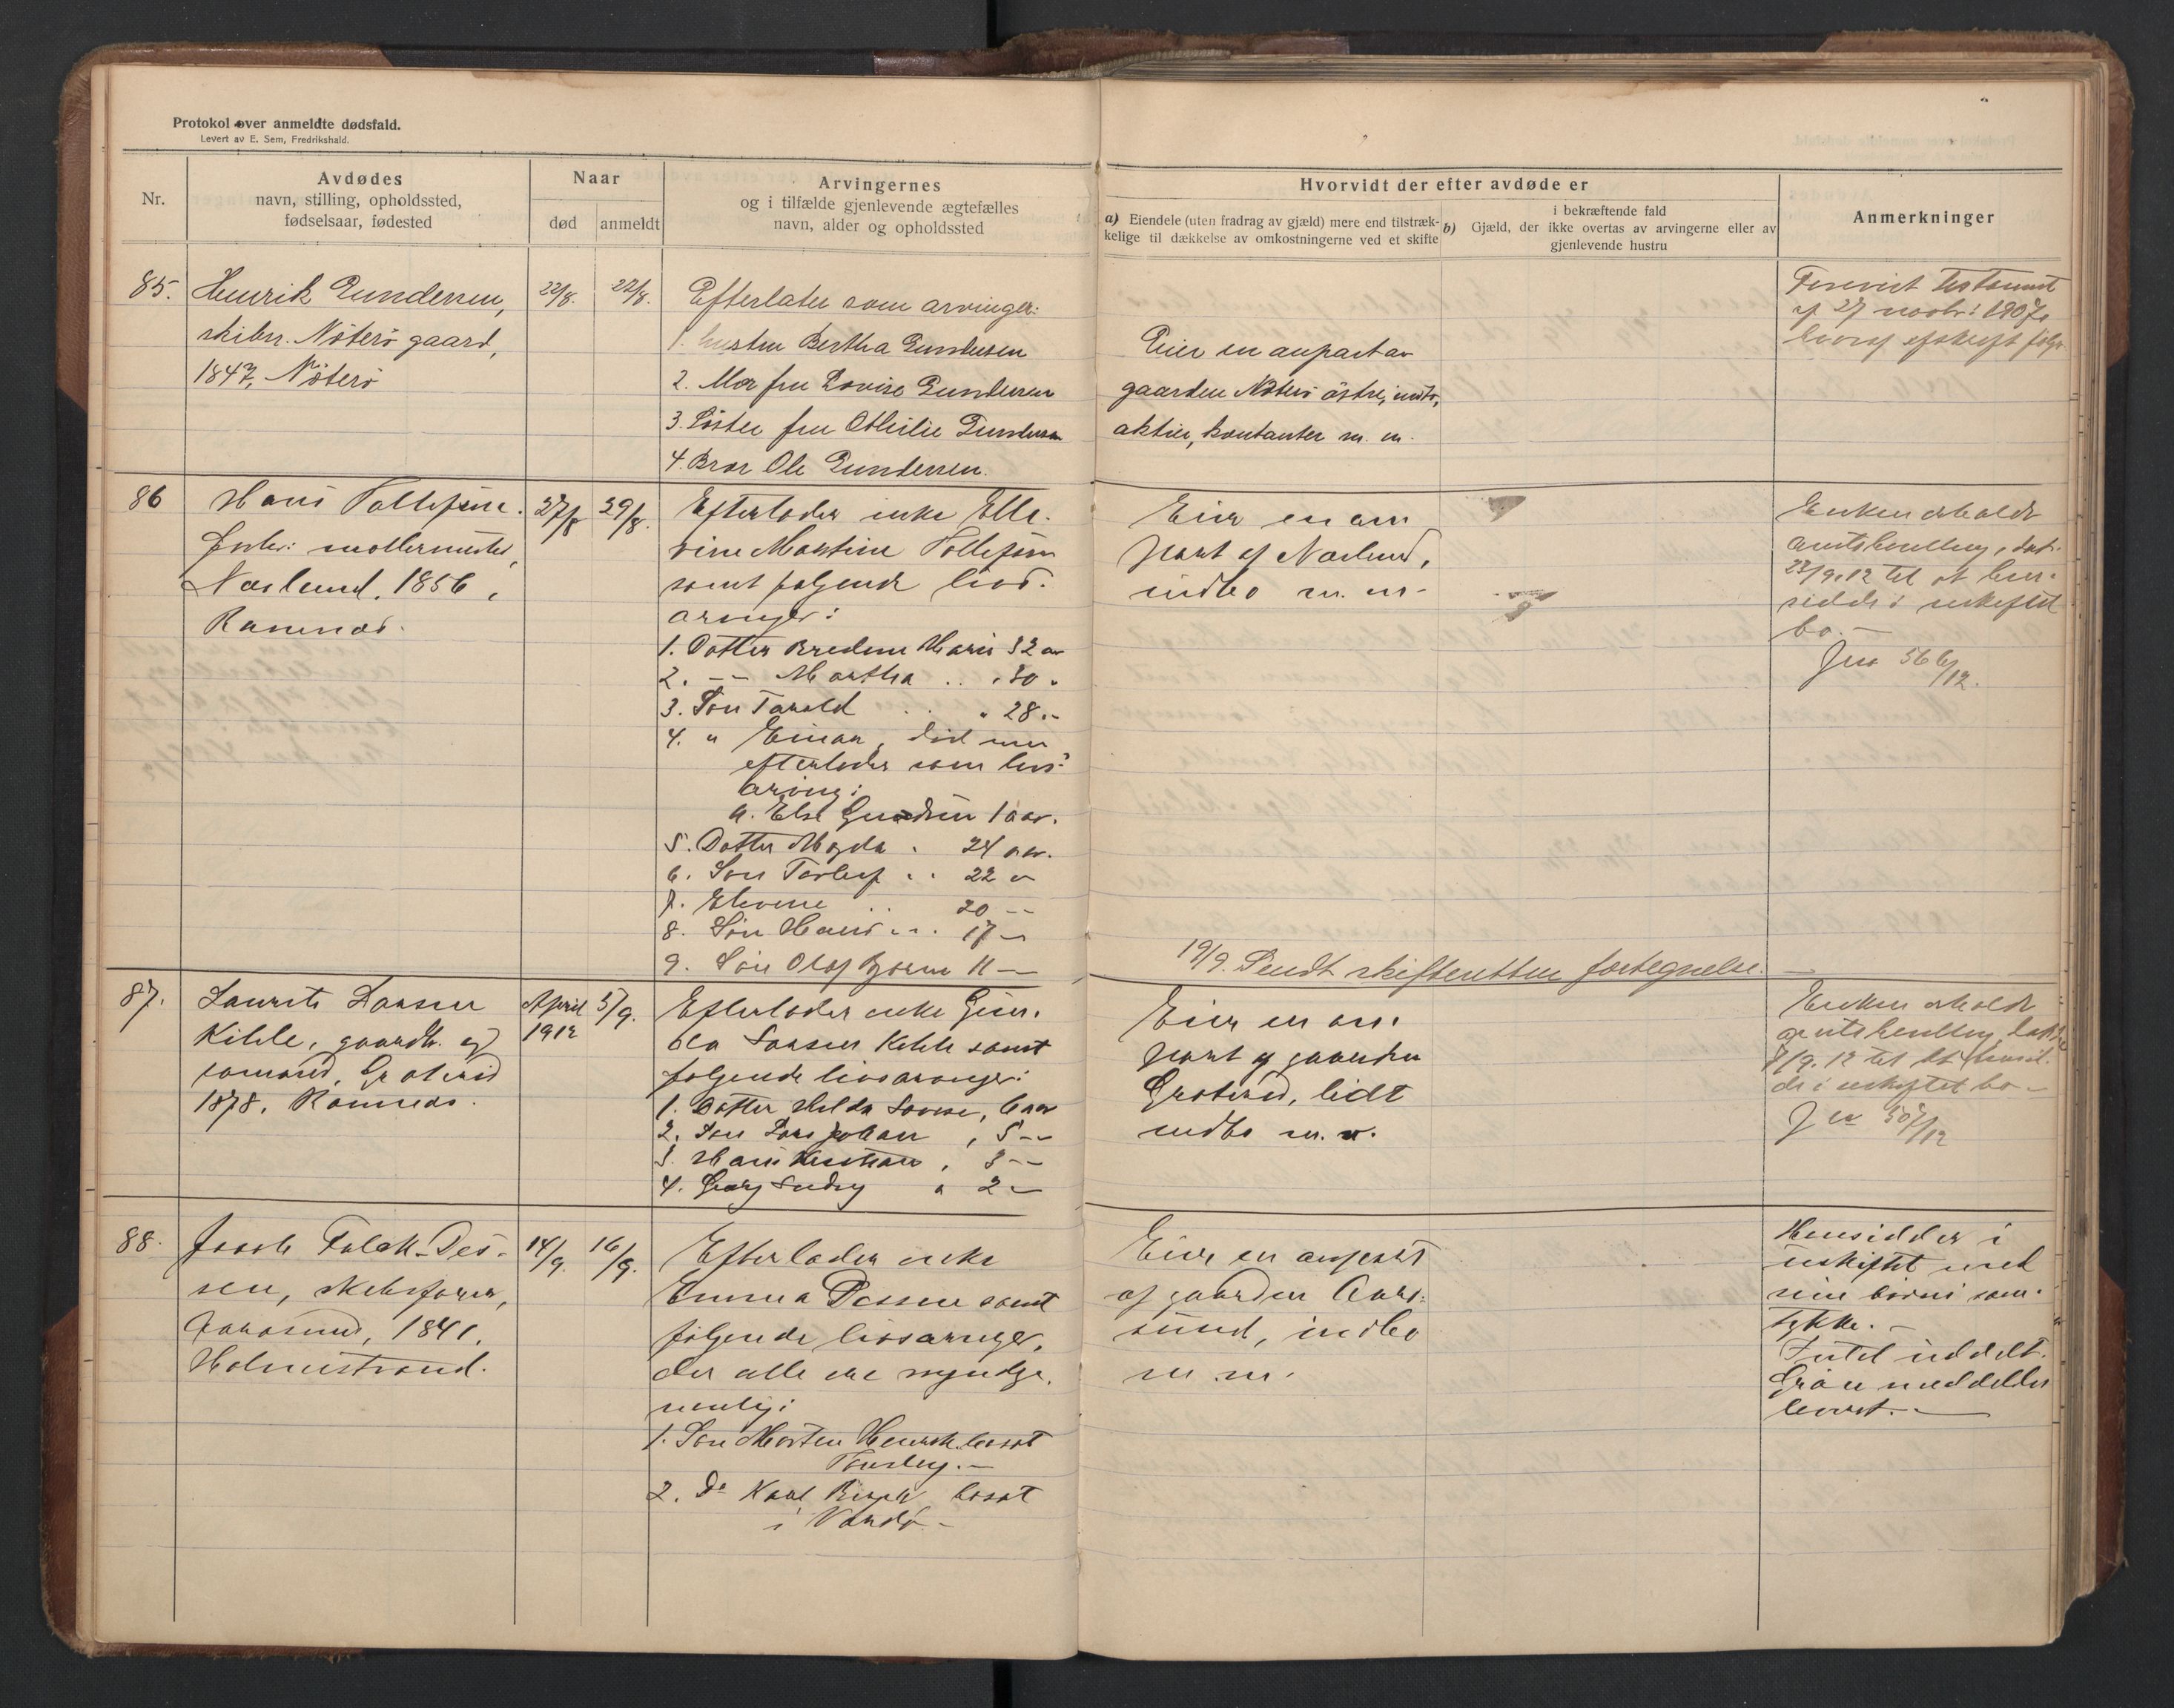 Protokol over anmeldte dødsfald.
Levert av E. Sem, Fredrikshald.
Nr.
Avdødes
navn, stilling, opholdssted,
fødselsaar, fødested
Naar
død
anmeldt
Arvingernes
og i tilfælde gjenlevende ægtefælles
navn, alder og opholdssted
Hvorvidt der efter avdøde er
a) Eiendele (uten fradrag av gjæld) mere end tilstræk-
kelige til dækkelse av omkostningerne ved et skifte
i bekræftende fald
b) Gjæld, der ikke overtas av arvingerne eller av
gjenlevende hustru
Anmerkninger
85.
Henrik Gundersen,
skibsr. Nøterø gaard,
1847, Nøterø
22/8.
22/8.
Efterlater som arvinger:
1. hustru Bertha Gundersen
2. Mor fru Lovise Gundersen
3. Søster fru Othilie Gundersen
4. Bror Ole Gundersen.
Eier en anpart av
gaarden Nøterø østre, indbo,
aktier, kontanter m. m.
Forevist testament
af 27 novbr: 1907,
hvoraf afskrift følger
86
Hans Tollefsen.
møllermester,
Narlund, 1856,
Ramnæs.
27/8
29/8.
Efterlader enke Elle-
vine Martine Tollefsen
samt følgende livs-
arvinger:
1. Datter Bredine Marie 32 aar
2. -- Martha .. " 30 "
3. Søn Harald " 28 --
4. " Einar, død men
efterlader som livs-
arving:
a. Else Gudrun 1 aar.
5. Datter Magda . 24 aar.
6. Søn Torleif .. 22 "
7. Elevine .. 20 --
8. Søn Hans ... 17 --
9. Søn Olaf Bjarne 11 --
Eier en an-
part af Narlund,
indbo m. m.
19/9. Sendt skifteretten fortegnelse. --
Enken erholdt
amtsbevilling, dat.
23/9.12 til at hen-
sidde i uskiftet
bo. --
Jnr 566/12.
87.
Laurits Larsen
Kihle, gaardbr. og
sømand, Grøterød
1878, Ramnæs.
April
1912
5/9.
Efterlader enke
Larsen Kihle samt
følgende livsarvinger:
1. Datter Hilda Lovise, 6 aar
2. Søn Lars Johan, 5 --
3. Hans Kristian, 3 --
4. Georg Ludvig " 2 --
Eier en an-
part af gaarden
Grøterød, lidt
indbo m. v.
Enken erholdt
amtsbevilling, dat.
9/9.12 til at hensid-
de i uskiftet bo --
Jnr 507/12
88.
Jacob Falck-Des-
sen, skibsfører,
Aarøsund, 1841,
Holmestrand.
14/9.
16/9.
Efterlader enke
Emma Dessen samt
følgende livsarvinger,
der alle ere myndige,
nemlig:
1. Søn Morten Henrik bosat
Tønsberg. --
2. Do Karl bosat
i Vardø --
Eier en anpart
af gaarden Aarø-
sund, indbo
m. m.
Hensidder i
uskiftet med
sine børns sam-
tykke. --
Intet uddelt.
Gråu meddelder
--